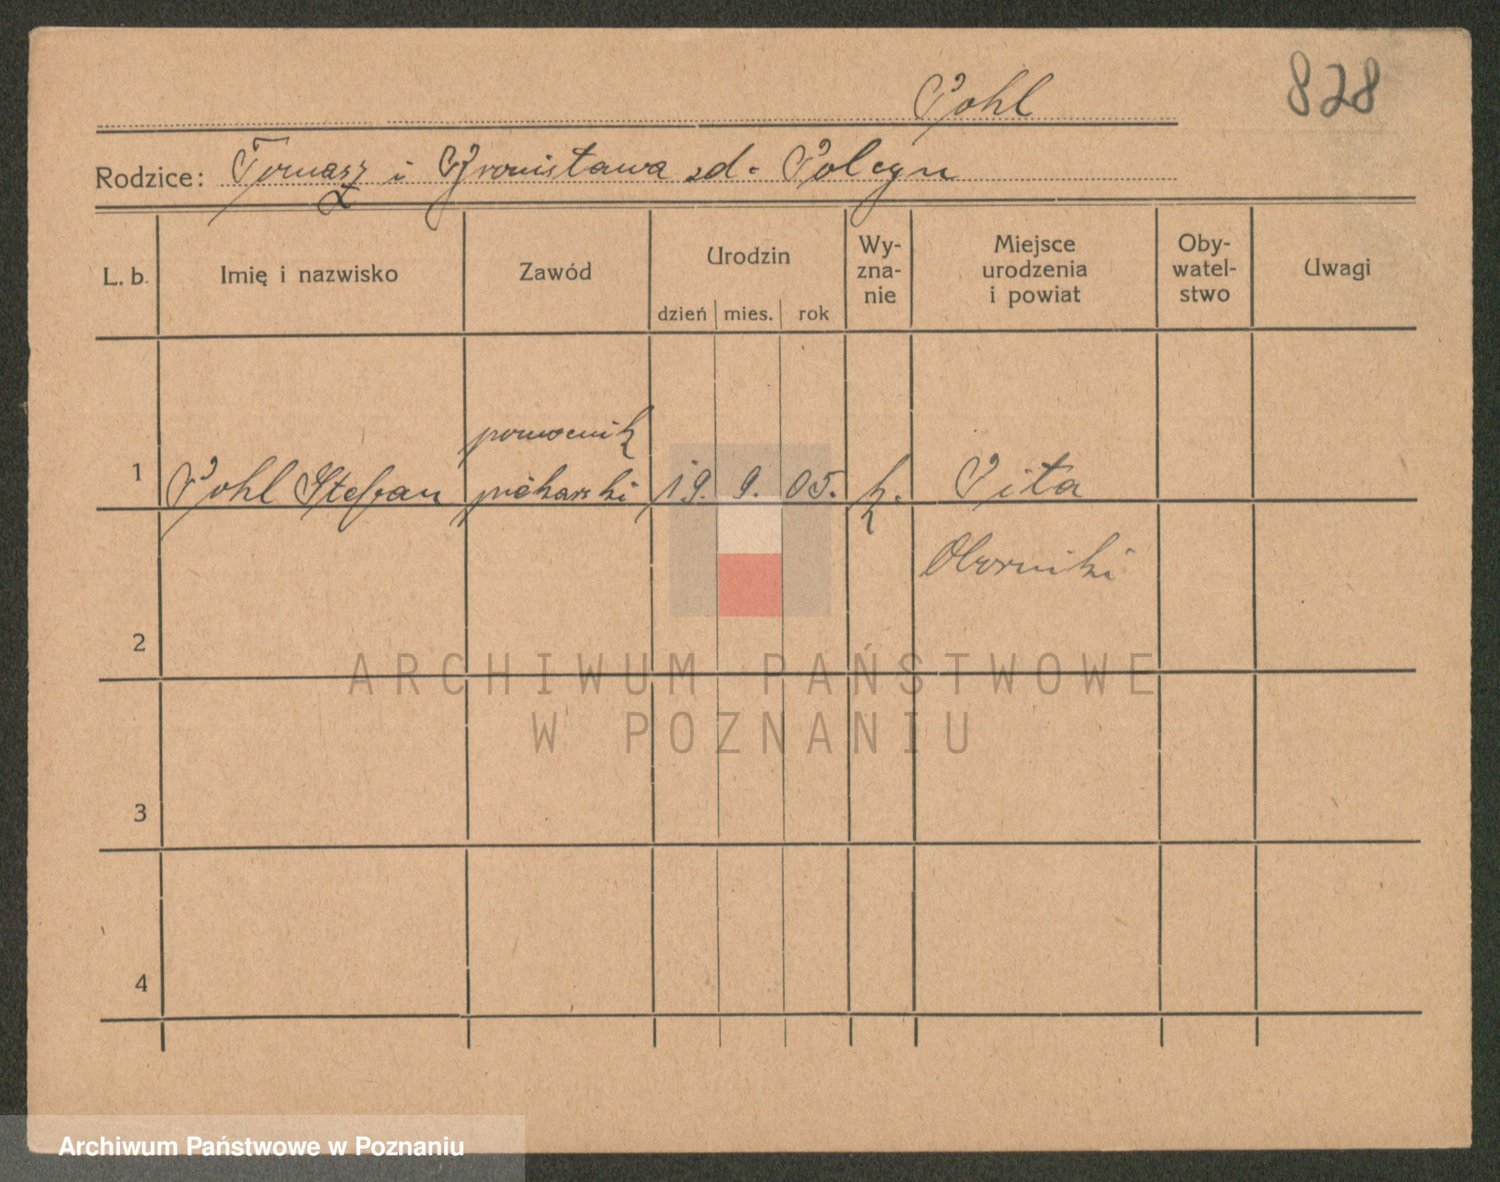 828
Pohl
Rodzice: Tomasz i Bronisława zd. Polcyn
L. b.
Imię i nazwisko
Zawód
Urodzin
dzień mies. rok
Wy-
zna-
nie
Miejsce
urodzenia
i powiat
Oby-
watel-
stwo
Uwagi
1
Pohl Stefan
pomocnik
piekarski
19. 9. 05.
k.
Pita
Oborniki
2
3
4
ARCHIWUM PAŃSTWOWE
W POZNANIU
Archiwum Państwowe w Poznaniu